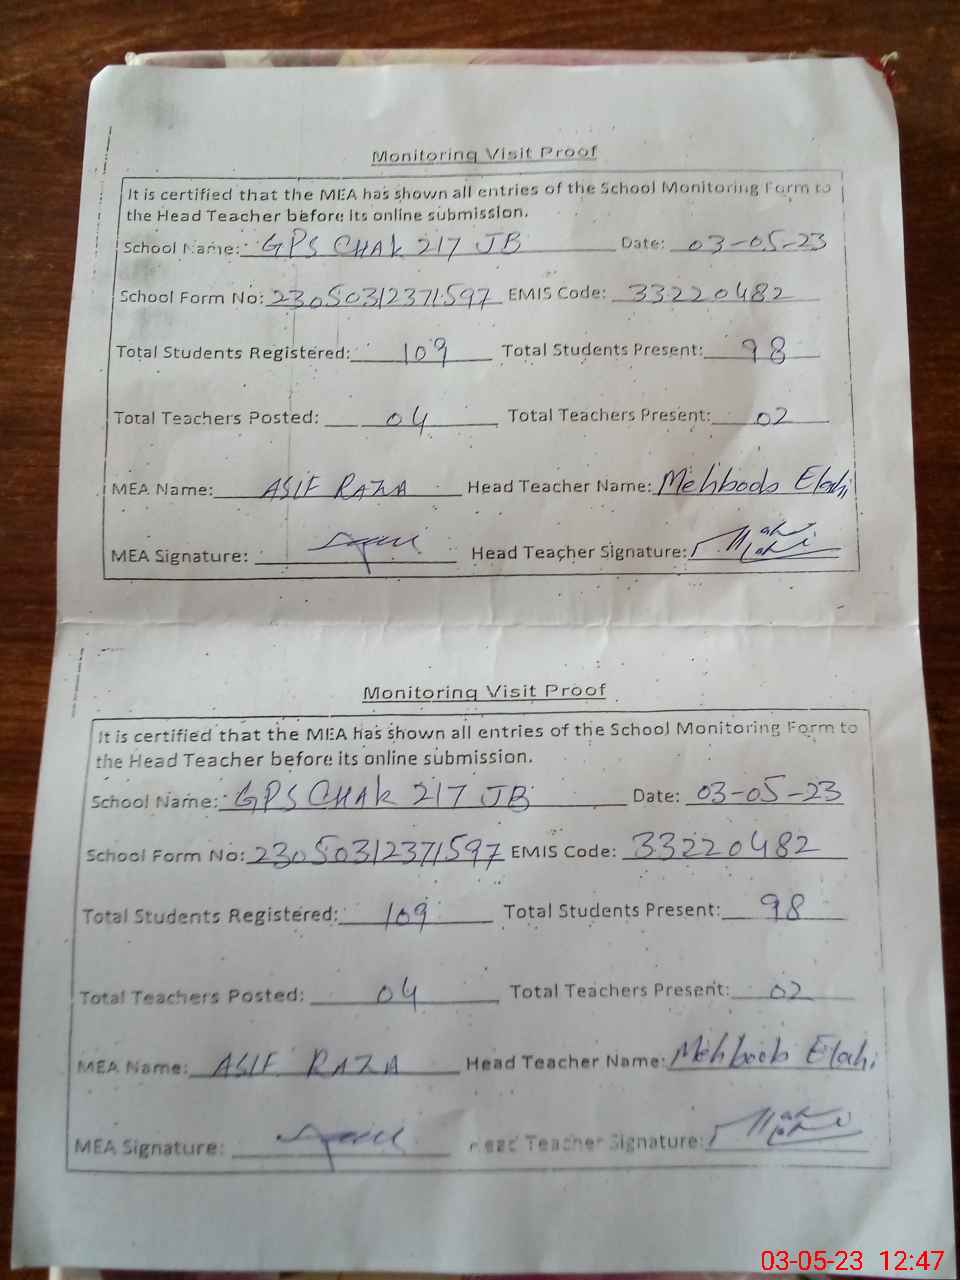 Monitoring Visit Proof
It is certified that the MEA has shown all entries of the School Monitoring Form to
the Head Teacher before its online submission.
School Name: GPS CHAK 217 JB Date: 03-05-23
School Form No: 23050312371597 EMIS Code: 33220482
Total Students Registered: 109 Total Students Present: 98
Total Teachers Posted: 04 Total Teachers Present: 02
MEA Name: ASIF RAZA Head Teacher Name: Mehboob Elahi
MEA Signature: Head Teacher Signature:
Monitoring Visit Proof
It is certified that the MEA has shown all entries of the School Monitoring Form to
the Head Teacher before its online submission.
School Name: GPS CHAK 217 JB Date: 03-05-23
School Form No: 23050312371597 EMIS Code: 33220482
Total Students Registered: 109 Total Students Present: 98
Total Teachers Posted: 04 Total Teachers Present: 02
MEA Name: ASIF RAZA Head Teacher Name: Mehboob Elahi
MEA Signature: Head Teacher Signature:
03-05-23 12:47